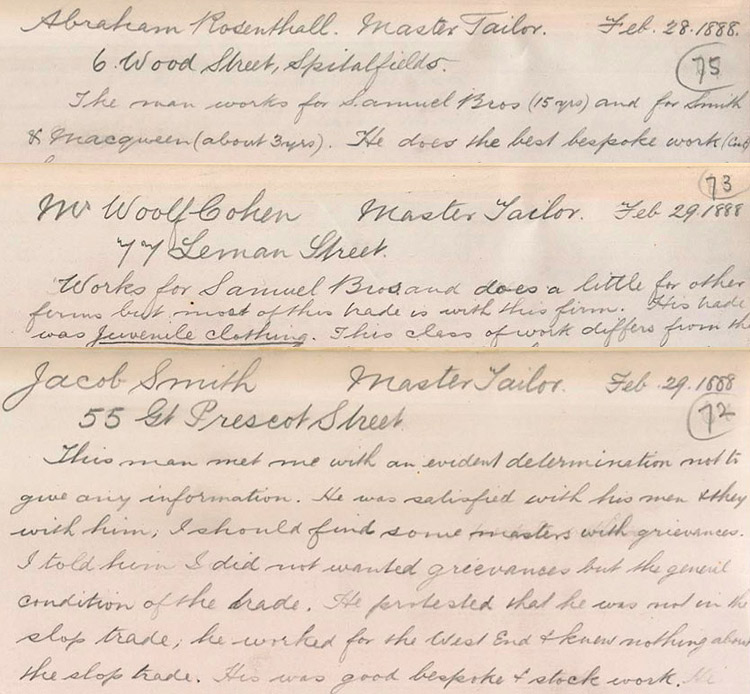 Abraham Rosenthall. Master Tailor. Feb. 28. 1888.
6 Wood Street, Spitalfields.
75
The man works for Samuel Bros (15 yrs) and for Smith
& Macqueen (about 3 yrs). He does the best bespoke work
73
Mr Woolf Cohen Master Tailor. Feb 29. 1888
77 Leman Street.
Works for Samuel Bros. and does a little for other
firms but most of his trade is with this firm. His trade
was juvenile clothing. This class of work differs from the
Jacob Smith Master Tailor. Feb. 29. 1888
55 Gt Prescot Street
72
This man met me with an evident determination not to
give any information. He was satisfied with his men & they
with him; I should find some masters with grievances.
I told him I did not wanted grievances but the general
condition of the trade. He protested that he was not in the
slop trade; he worked for the West End & knew nothing about
the slop trade. His was good bespoke & stock work.